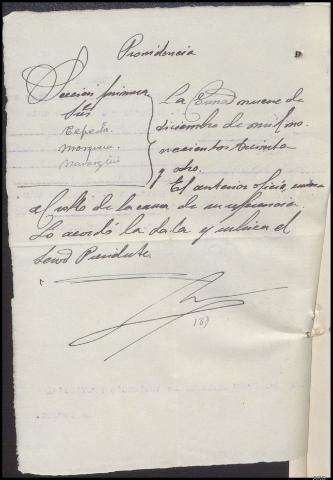 Providencia
Sección primera
Srs
Cepeda
Moreno
Naranjo
La Coruña nueve de
diciembre de mil no-
vecientos treinta
y ocho.
El anterior oficio, una
al rollo de la causa de su referencia.
Lo acordó la Sala y rubrica el
Señor Presidente.
187